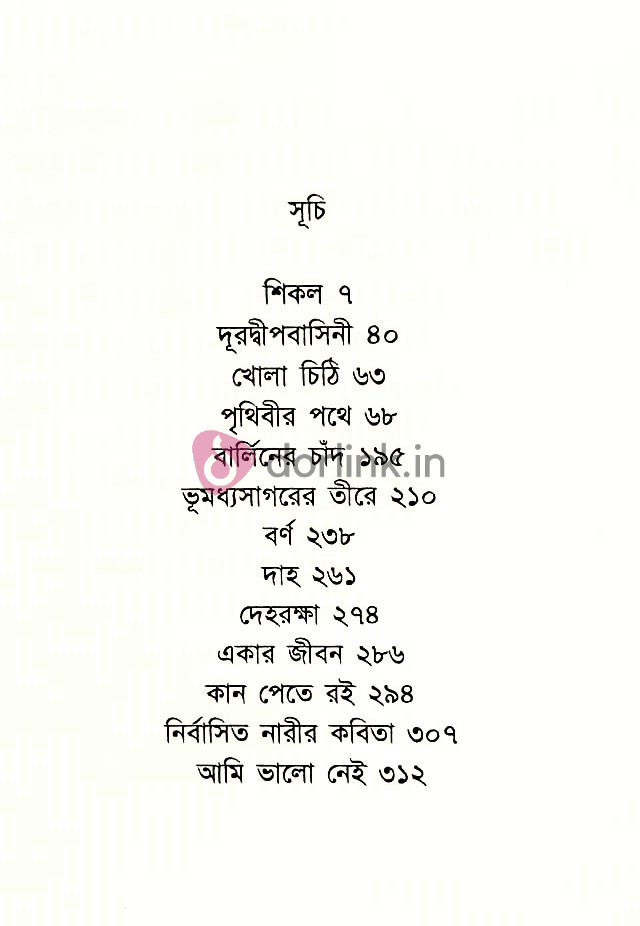 সূচি
শিকল ৭
দূরদ্বীপবাসিনী ৪০
খোলা চিঠি ৬৩
পৃথিবীর পথে ৬৮
বার্লিনের চাঁদ ১৯৫
dorlink.in
ভূমধ্যসাগরের তীরে ২১০
বর্ণ ২৩৮
দাহ ২৬১
দেহরক্ষা ২৭৪
একার জীবন ২৮৬
কান পেতে রই ২৯৪
নির্বাসিত নারীর কবিতা ৩০৭
আমি ভালো নেই ৩১২